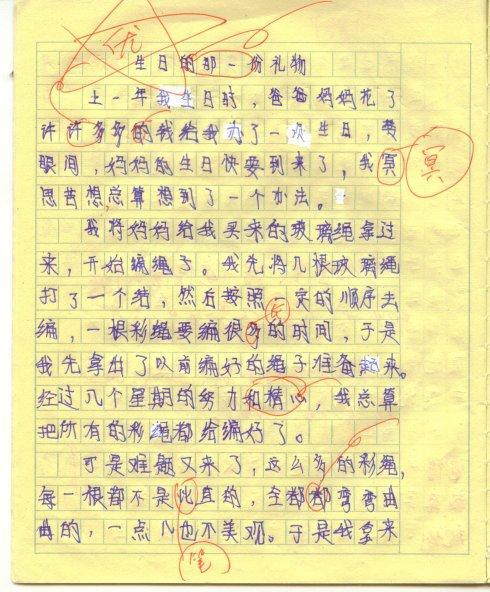 优
生日的那一份礼物
上一年我生日时，爸爸妈妈花了
许许多多的钱给我办了一次生日，转
眼间，妈妈的生日快要到来了，我冥
冥
思苦想，总算想到了一个办法。
我将妈妈给我买来的玻璃绳拿过
来，开始编绳了。我先将几根玻璃绳
打了一个结，然后按照一定的顺序去
编，一根彩绳要编很多的时间，于是
长
我先拿出了以前编好的绳子准备起来。
经过几个星期的努力和精心，我总算
把所有的彩绳都给编好了。
可是难题又来了，这么多的彩绳，
每一根都不是 直的，全都都弯弯曲
曲的，一点儿也不美观。于是我拿来
(笔)